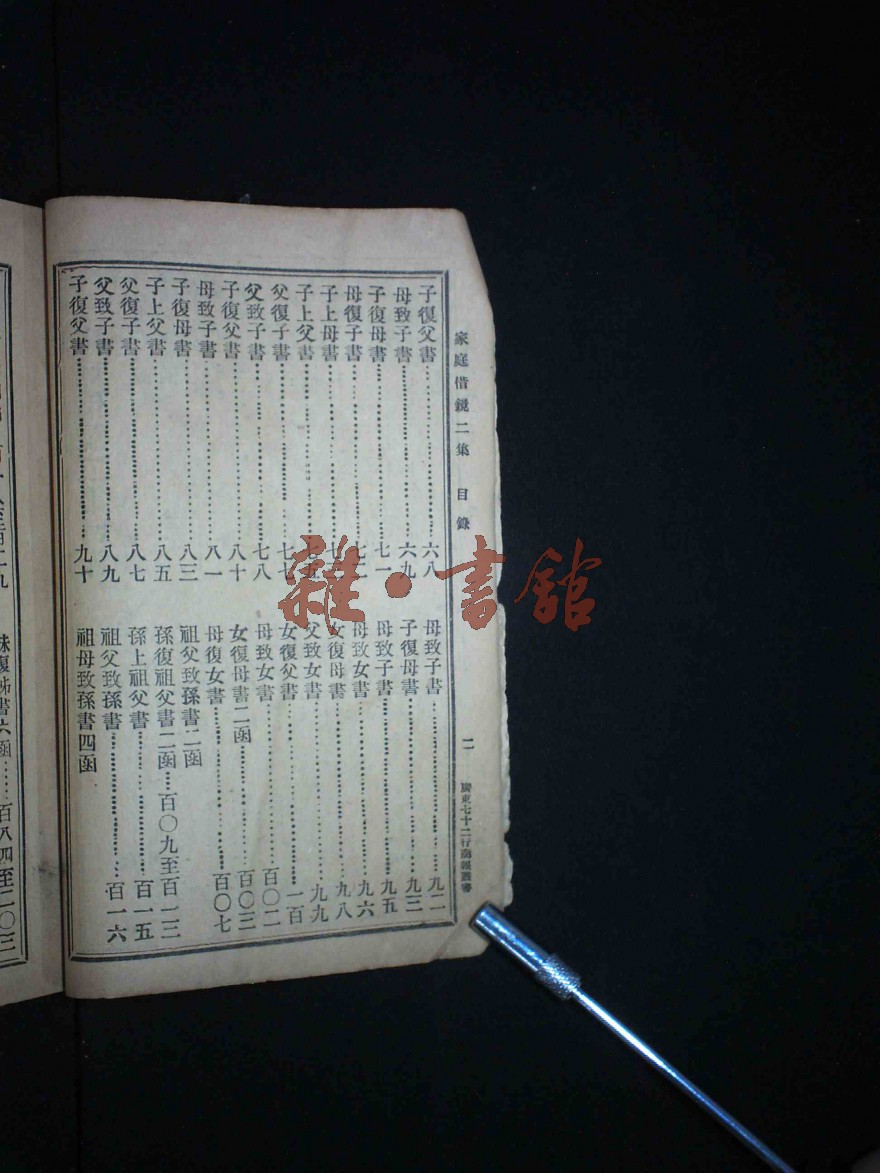 家庭借鏡二集 目錄
二
廣東七十二行商報叢書
子復父書……六八
母致子書……六九
子復母書……七一
母復子書……七二
子上母書……
子上父書……七五
父復子書……七七
父致子書……七八
子復父書……八十
母致子書……八一
子復母書……八三
子上父書……八五
父復子書……八七
父致子書……八九
子復父書……九十
母致子書……九二
子復母書……九三
母致子書……九五
母致女書……九六
女復母書……九八
父致女書……九九
女復父書……一百
母致女書……百〇二
女復母書二函……百〇三
母復女書……百〇七
祖父致孫書二函
孫復祖父書二函……百〇九至百一三
孫上祖父書……百一五
祖父致孫書……百一六
祖母致孫書四函
妹復姊書六函……百八四至二〇三
雜·書館